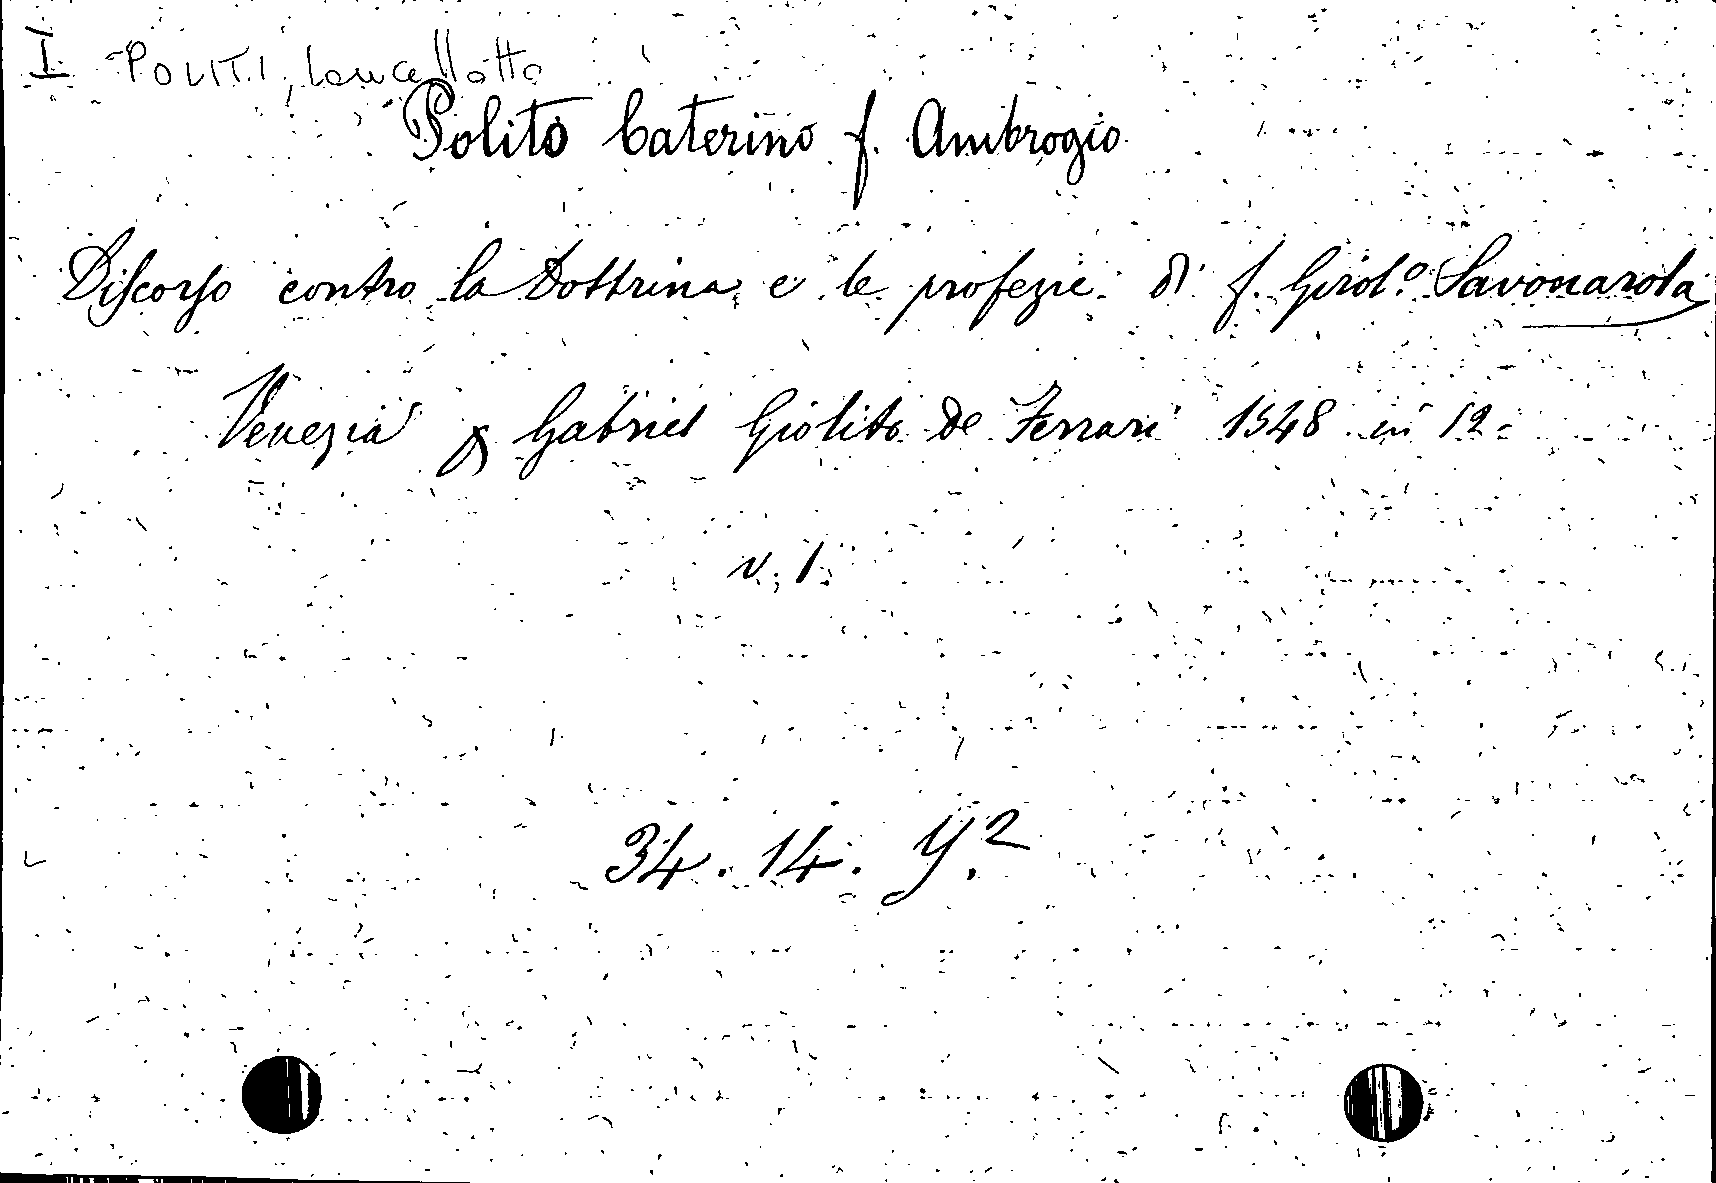 I POLITI, Lancellotto
Polito Caterino f. Ambrogio
Discorso contro la Dottrina e le profezie di f. Girol.º Savonarola
Venezia p Gabriel Giolito de Ferrari 1548 in 12
v. 1.
34. 14. Y.2